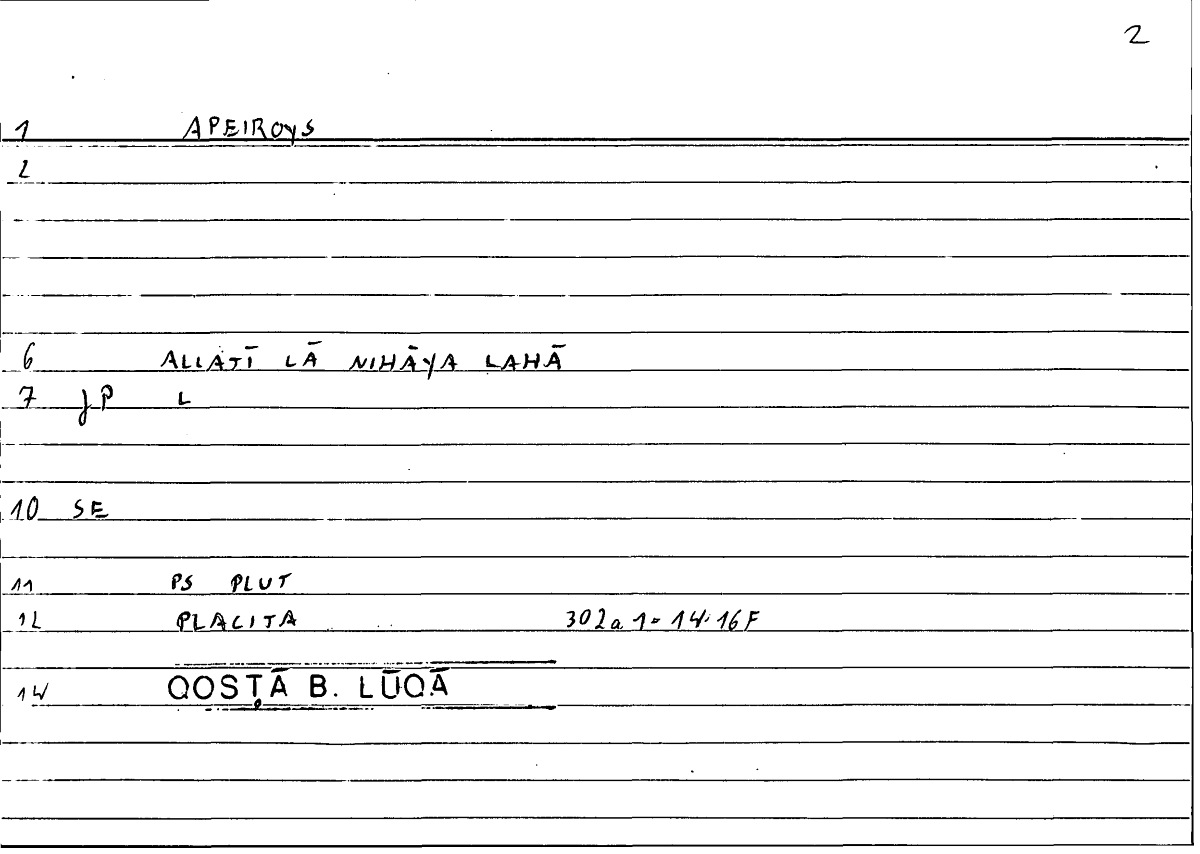 2
1 APEIROYS
2
6 ALLATĪ LĀ NIHĀYA LAHĀ
7 JP L
10 SE
11 PS PLUT
12 PLACITA 302a 1-14.16F
14 QOSṬĀ B. LŪQĀ